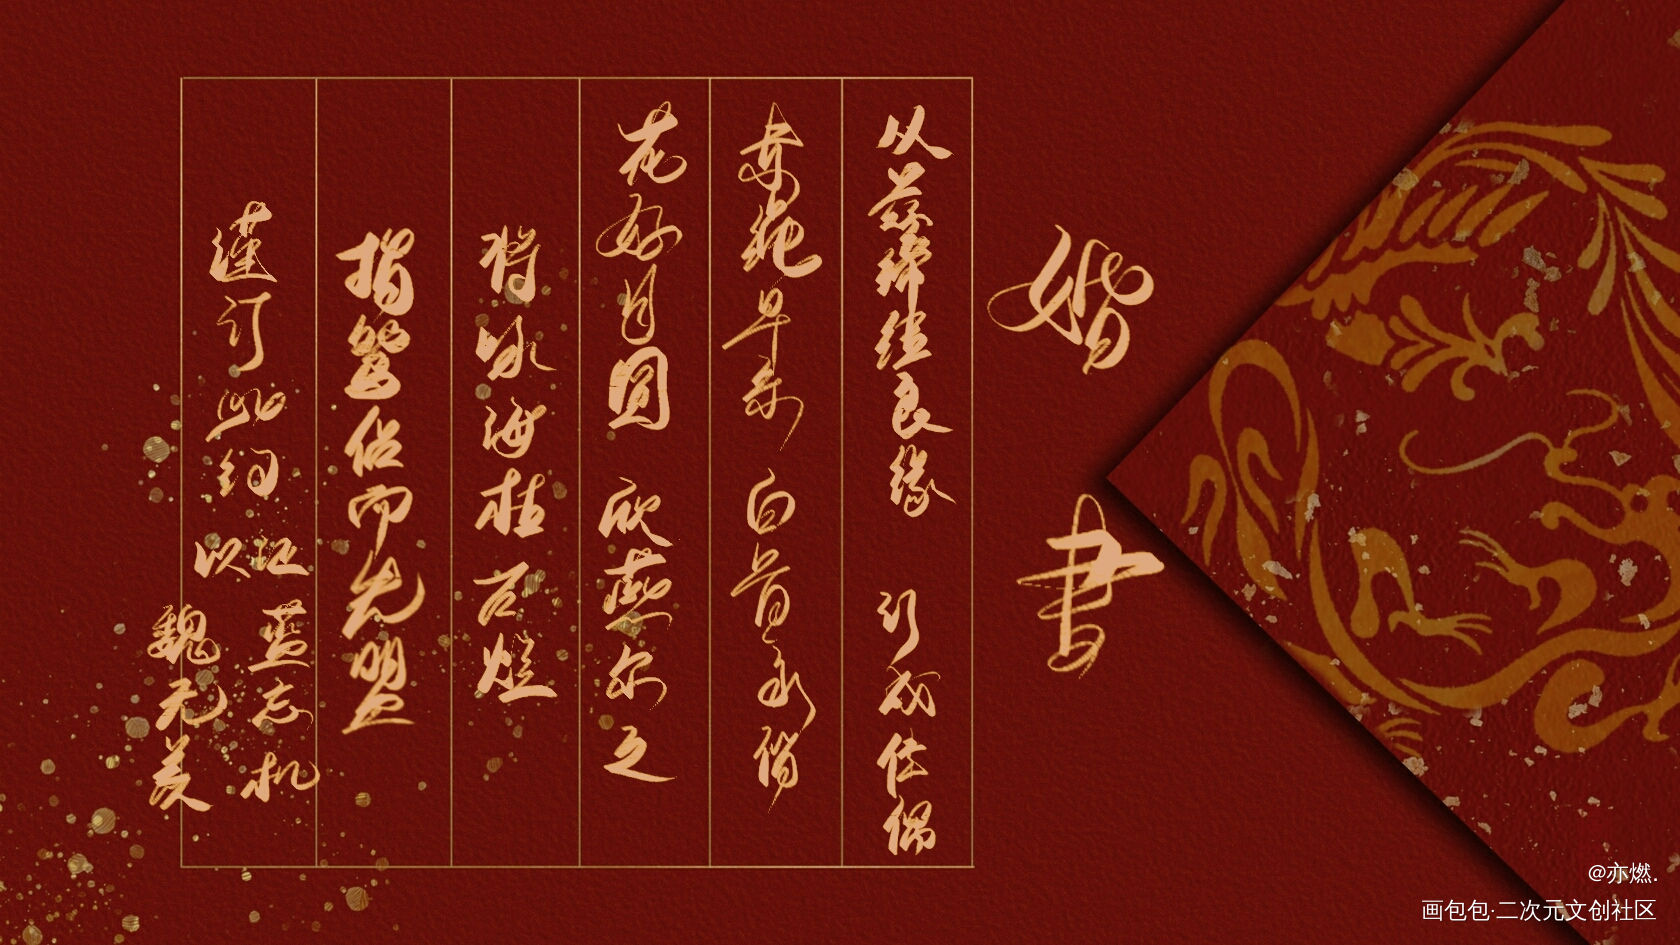 婚书
从兹缔结良缘 订成佳偶
赤绳早系 白首永偕
花好月圆 欣燕尔之
将泳海枯石烂
指鸳侣而先盟
谨订此约
蓝忘机
魏无羡
@亦燃.
画包包·二次元文创社区